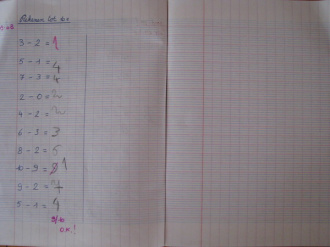 Rekenen tot 10
3 - 2 = 1
5 - 1 = 4
7 - 3 = 4
2 - 0 = 2
4 - 2 = 2
6 - 3 = 3
8 - 2 = 6
10 - 9 = 1
9 - 2 = 7
5 - 1 = 4